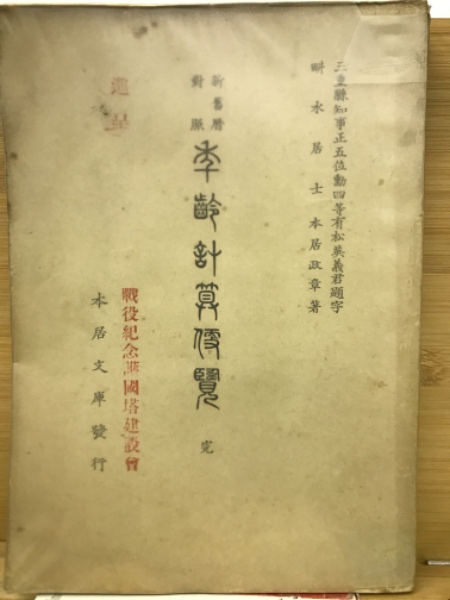 三重縣知事正五位勳四等有松英義君題字
畊水居士本居政章著
新舊曆
對照
年齡計算便覽 完
進呈
戰役紀念護國塔建設會
本居文庫發行